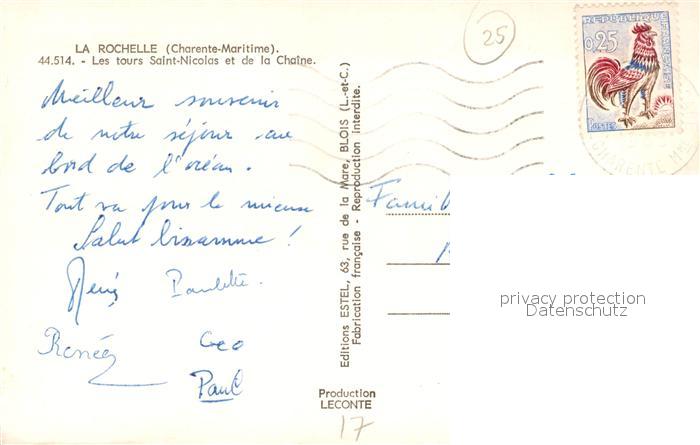 LA ROCHELLE (Charente-Maritime).
44.514. - Les tours Saint-Nicolas et de la Chaîne.
Meilleur souvenir
de notre séjour au
bord de l'océan.
Tout va pour le mieux
Salut
René Paulette.
Renée Geo
Paul
Editions ESTEL, 63, rue de la Mare, BLOIS (L.-et-C.)
Fabrication française - Reproduction Interdite.
Production
LECONTE
17
25
REPUBLIQUE FRANÇAISE
0,25
POSTES
CHARENTE MME
Famil
privacy protection
Datenschutz